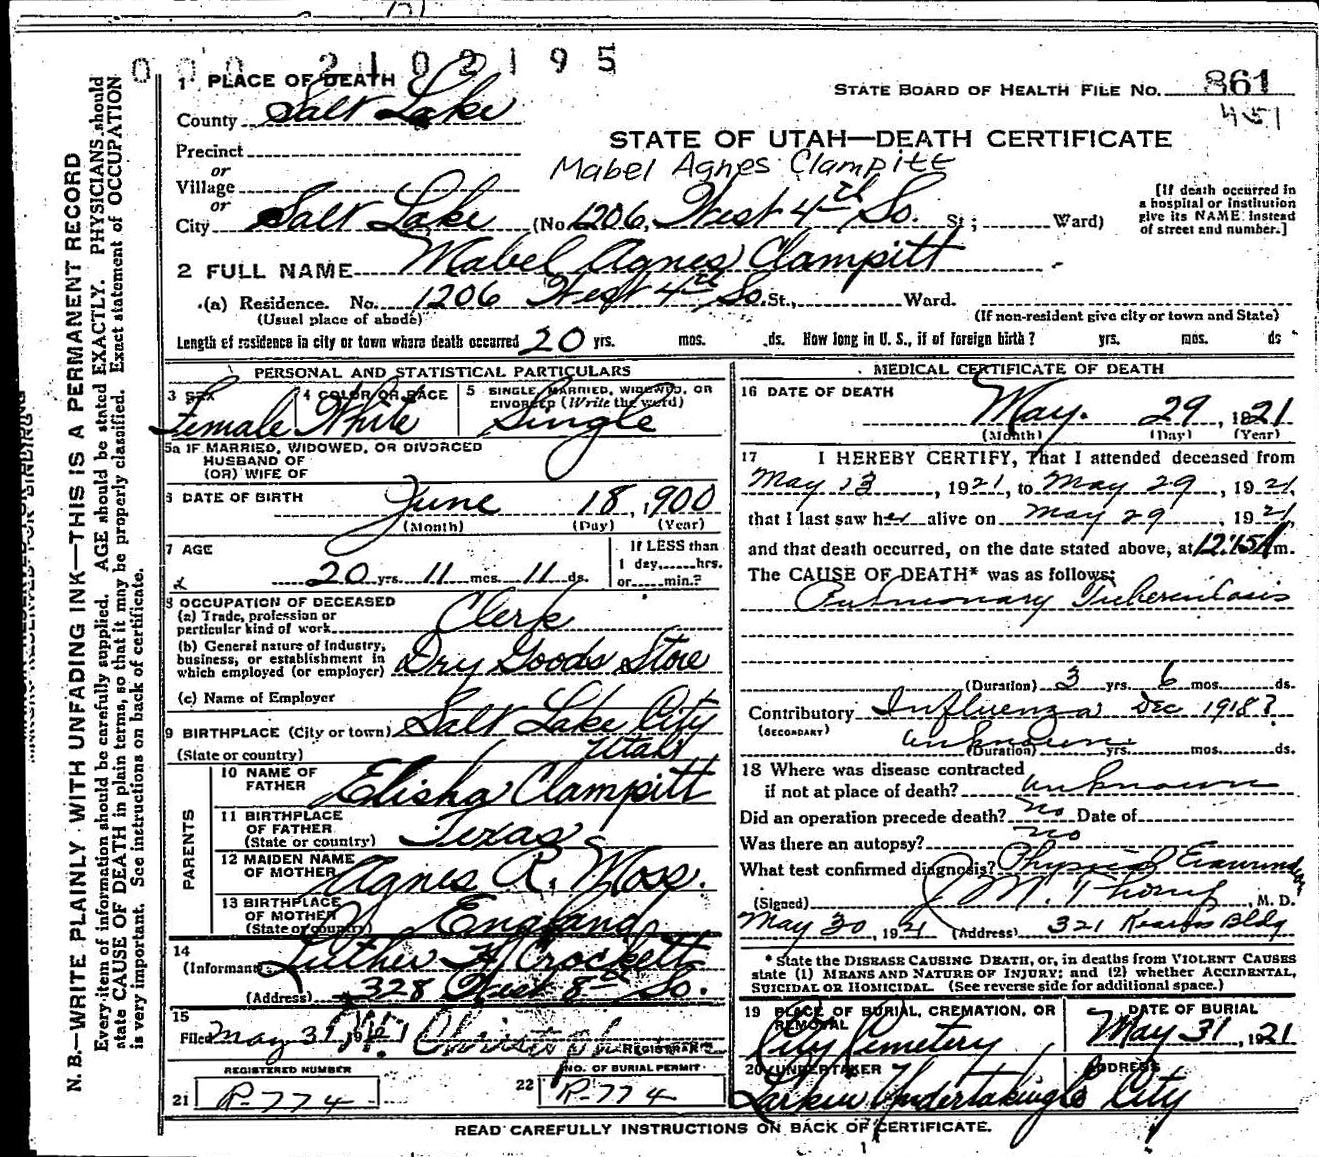 0 0 0 2 1 0 2 1 9 5
1 PLACE OF DEATH
County Salt Lake
STATE BOARD OF HEALTH FILE No. 861
451
STATE OF UTAH—DEATH CERTIFICATE
Precinct
Mabel Agnes Clampitt
or
Village
or
City Salt Lake (No. 1206, West 4th So. St; Ward)
[If death occurred in
a hospital or institution
give its NAME instead
of street and number.]
2 FULL NAME Mabel Agnes Clampitt
(a) Residence. No. 1206 West 4th So. St., Ward.
(Usual place of abode) (If non-resident give city or town and State)
Length of residence in city or town where death occurred 20 yrs. mos. ds. How long in U. S., if of foreign birth? yrs. mos. ds
PERSONAL AND STATISTICAL PARTICULARS
3 SEX 4 COLOR OR RACE 5 SINGLE, MARRIED, WIDOWED, OR
DIVORCED (Write the word)
Female White Single
5a IF MARRIED, WIDOWED, OR DIVORCED
HUSBAND OF
(OR) WIFE OF
6 DATE OF BIRTH June 18, 1900
(Month) (Day) (Year)
7 AGE If LESS than
1 day,......hrs.
20 yrs. 11 mos. 11 ds. or......min.?
8 OCCUPATION OF DECEASED
(a) Trade, profession or
particular kind of work Clerk
(b) General nature of industry,
business, or establishment in
which employed (or employer) Dry Goods Store
(c) Name of Employer
9 BIRTHPLACE (City or town) Salt Lake City
(State or country) Utah
PARENTS
10 NAME OF
FATHER Elisha Clampitt
11 BIRTHPLACE
OF FATHER
(State or country) Texas
12 MAIDEN NAME
OF MOTHER Agnes R. Moss.
13 BIRTHPLACE
OF MOTHER
(State or country) England
14
(Informant) Luther H Crockett
(Address) 328 West 8th So.
15
Filed May 31, 1921
REGISTRAR
REGISTERED NUMBER
21 R-774
NO. OF BURIAL PERMIT
22 R-774
MEDICAL CERTIFICATE OF DEATH
16 DATE OF DEATH
May. 29, 1921
(Month) (Day) (Year)
17 I HEREBY CERTIFY, That I attended deceased from
May 13, 1921, to May 29, 1921,
that I last saw her alive on May 29, 1921
and that death occurred, on the date stated above, at 12:15A m.
The CAUSE OF DEATH* was as follows:
Pulmonary Tuberculosis
(Duration) 3 yrs. 6 mos. ds.
Contributory Influenza Dec 1918?
(SECONDARY) unknown
(Duration) yrs. mos. ds.
18 Where was disease contracted
if not at place of death? unknown
Did an operation precede death? no Date of
Was there an autopsy? no
What test confirmed diagnosis? Physical
(Signed) M. D.
May 30, 1921 (Address) 321 Kearns Bldg
* State the DISEASE CAUSING DEATH, or, in deaths from VIOLENT CAUSES
state (1) MEANS AND NATURE OF INJURY; and (2) whether ACCIDENTAL,
SUICIDAL OR HOMICIDAL. (See reverse side for additional space.)
19 PLACE OF BURIAL, CREMATION, OR
REMOVAL
City Cemetery
DATE OF BURIAL
May 31, 1921
20 UNDERTAKER
Larkin Undertaking Co
ADDRESS
City
READ CAREFULLY INSTRUCTIONS ON BACK OF CERTIFICATE.
N. B.—WRITE PLAINLY WITH UNFADING INK—THIS IS A PERMANENT RECORD
Every item of information should be carefully supplied. AGE should be stated EXACTLY. PHYSICIANS should
state CAUSE OF DEATH in plain terms, so that it may be properly classified. Exact statement of OCCUPATION
is very important. See instructions on back of certificate.